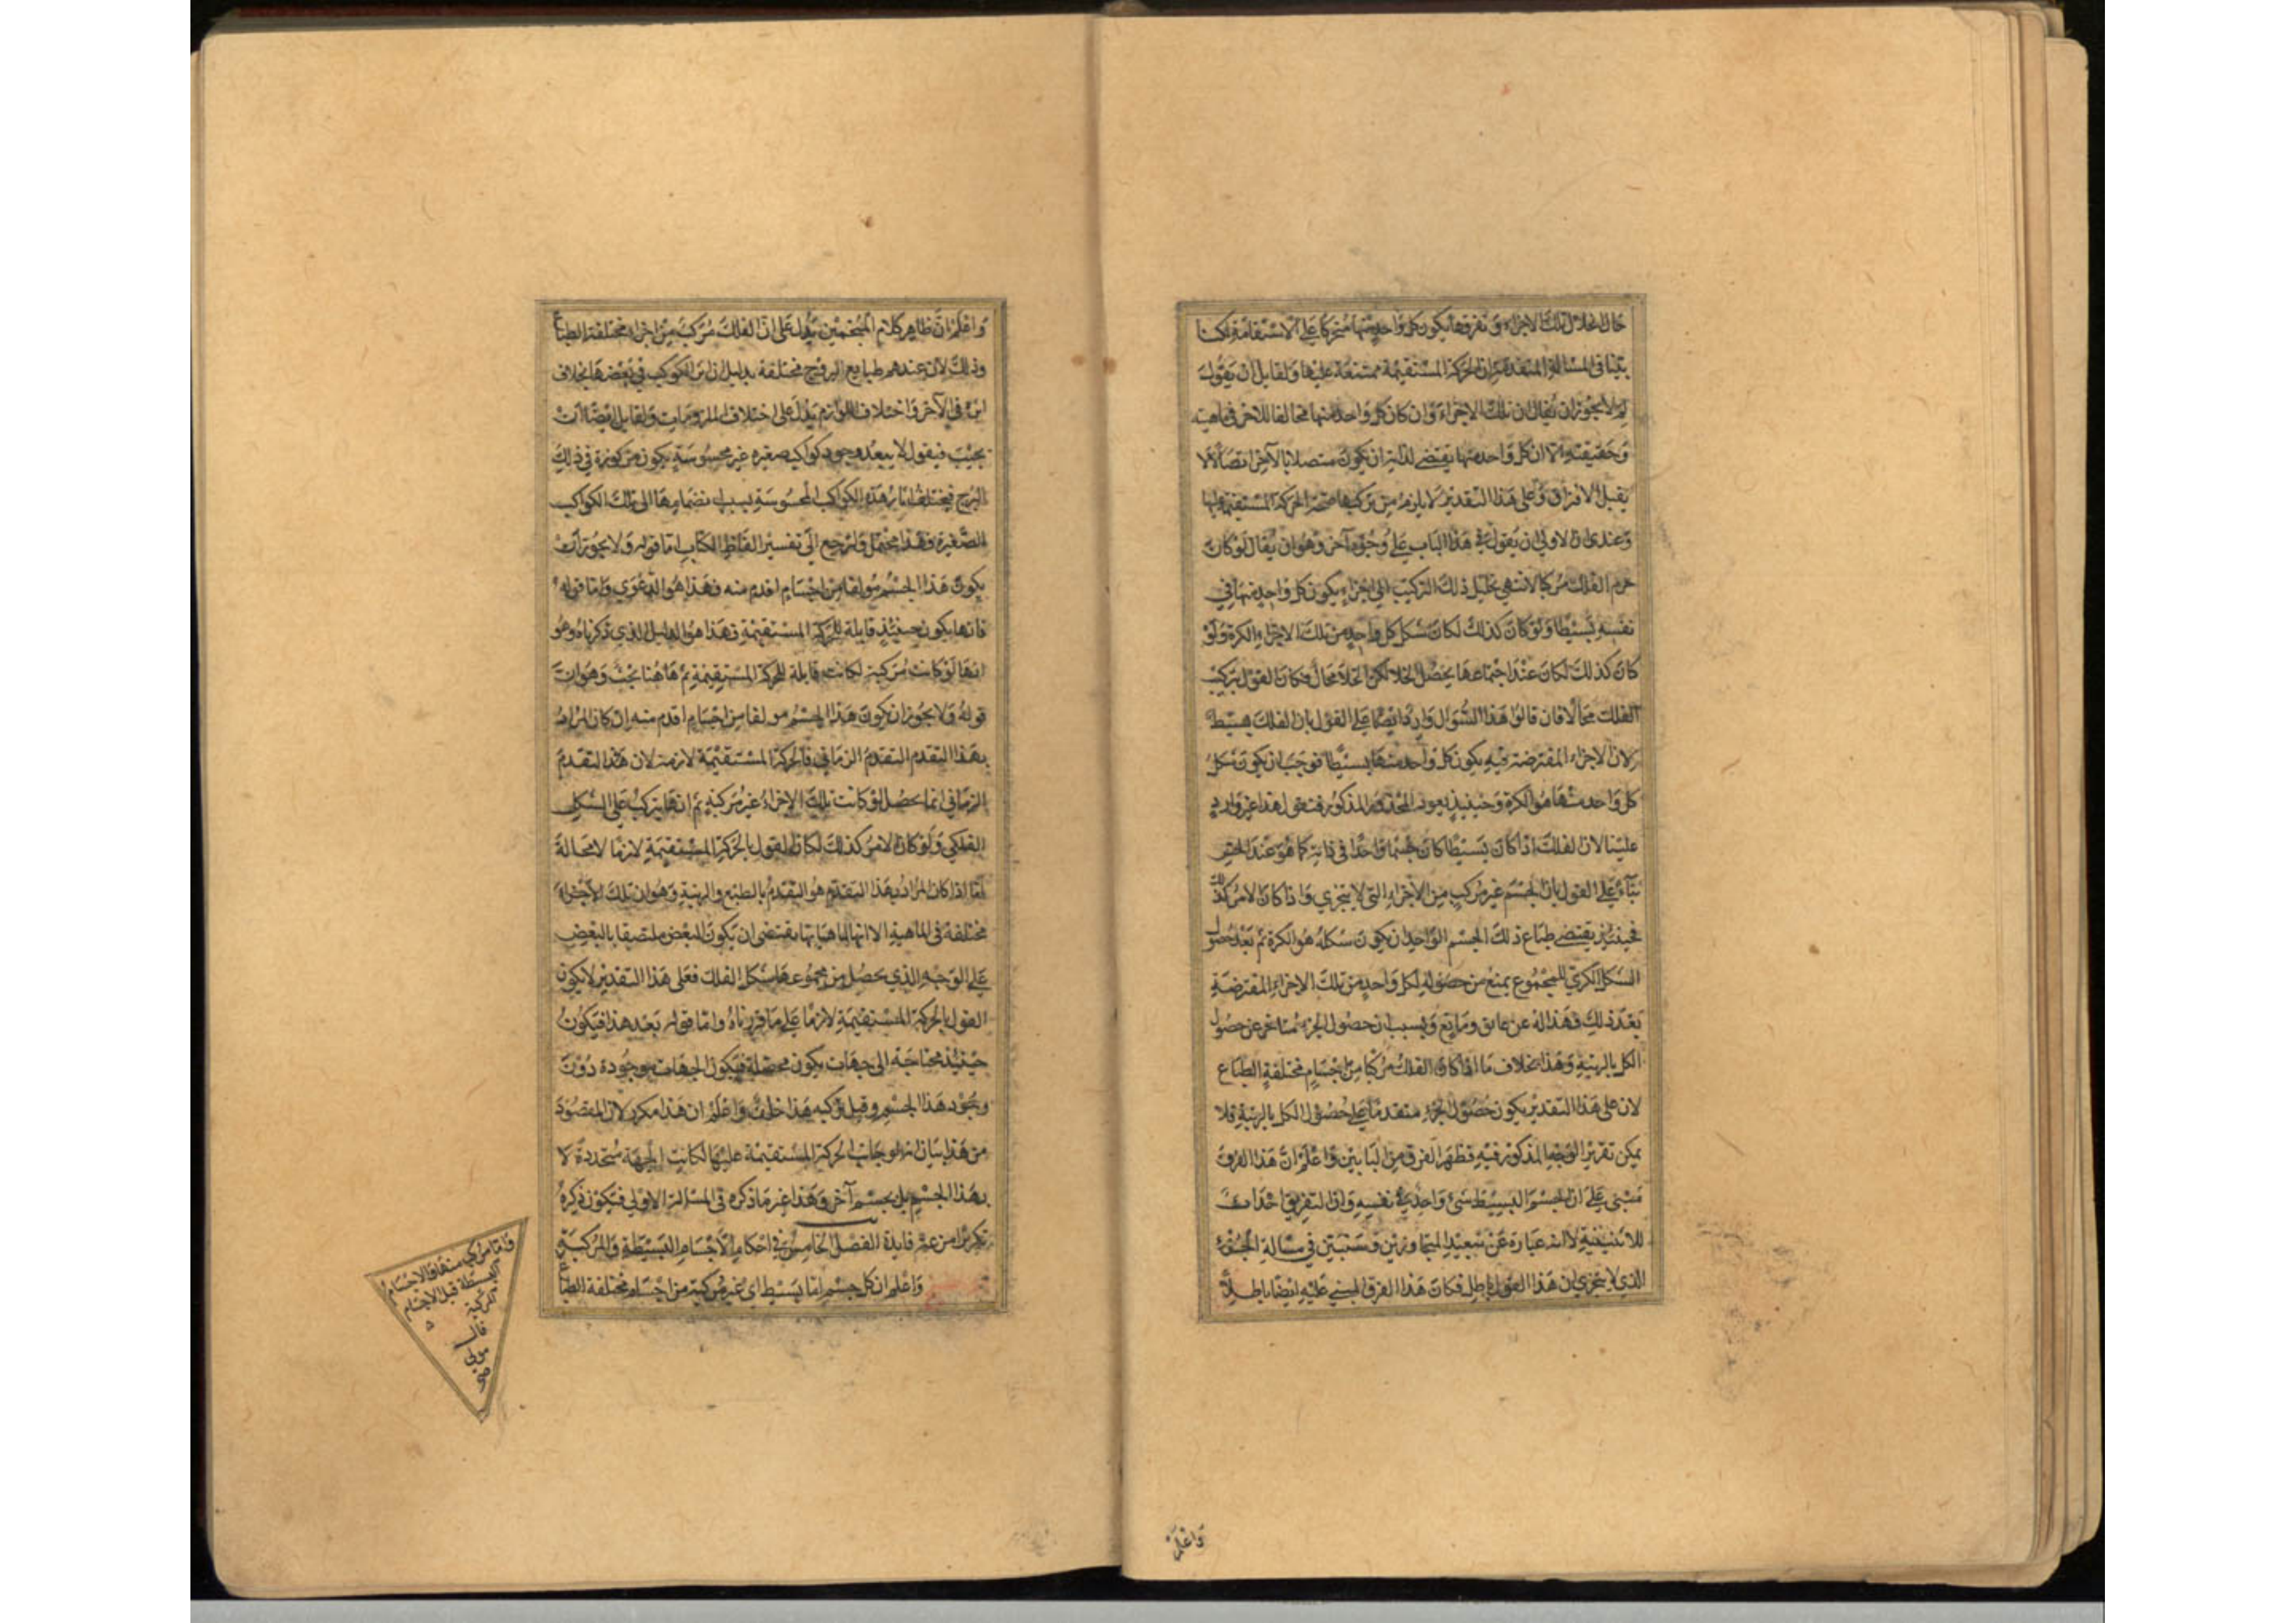 حال انحلال تلك الاجزاء و تفرقها يكون كل واحد منها متحركا على الاستقامة لكنا
بينا في المسالة المتقدمة ان الحركة المستقيمة ممتنعة عليها ولقايل ان يقول
لم لا يجوز ان يقال ان تلك الاجزاء وان كان كل واحد منها مخالفا للاخر في ماهيته
وحقيقته الا ان كل واحد منها يقتضى لذاته ان يكون متصلا بالآخر اتصالا لا
يقبل الافتراق وعلى هذا التقدير لا يلزم من تركبها صحة الحركة المستقيمة عليها
وعندى ان الاولى ان يقول في هذا الباب على وجوه آخر وهو ان يقال لو كان
جرم الفلك مركبا لانتهى تحليل ذلك التركيب الى اجزاء يكون كل واحد منها في
نفسه بسيطا ولو كان كذلك لكان شكل كل واحد من تلك الاجزاء الكرة ولو
كان كذلك لكان عند اجتماعها يحصل الخلا لكن الخلا محال فكان القول بتركيب
الفلك محالا فان قالوا هذا السوال وارد ايضا على القول بان الفلك بسيط
لان الاجزاء المفترضة فيه يكون كل واحد منها بسيطا فوجب ان يكون شكل
كل واحد منها هو الكرة وحينيذ يعود المحذور المذكور فنقول هذا غير وارد
علينا لان الفلك اذا كان بسيطا كان جسما واحدا في ذاته كما هو عند الحس
بناء على القول بان الجسم غير مركب من الاجزاء التى لا يتجزي واذا كان الامر كذلك
فحينيذ يقتضى طباع ذلك الجسم الواحد ان يكون شكله هو الكرة ثم بعد حصول
الشكل الكري للمجموع يمنع من حصوله لكل واحد من تلك الاجزاء المفترضة
بعد ذلك فهذا له عن عايق ومانع وبسبب ان حصول الجزء متاخر عن حصول
الكل بالرتبة وهذا بخلاف ما اذا كان الفلك مركبا من اجسام مختلفة الطباع
لان على هذا التقدير يكون حصول الجزء متقدما على حصول الكل بالرتبة فلا
يمكن تقرير الوجه المذكور فيه فظهر الفرق من البابين واعلم ان هذا الفرق
مبنى على ان الجسم البسيط شئ واحد في نفسه وان التفريق احداث
للاثنينية لا انه عبارة عن تبعيد المتجاورين وسنبين في مسالة الجزء
الذي لا يتجزي ان هذا القول باطل فكان هذا الفرق المبنى عليه ايضا باطلا
واعلم
واعلم ان ظاهر كلام المنجمين يدل على ان الفلك مركب من اجزاء مختلفة الطباع
وذلك لان عندهم طبايع البروج مختلفة بدليل ان اثر الكوكب في بعضها بخلاف
اثره في الآخر واختلاف اللوازم يدل على اختلاف الملزومات ولقايل ايضا ان
يجيب فيقول لا يبعد وجود كواكب صغيره غير محسوسة يكون مركوزة في ذلك
البرج فيختلف اثار هذه الكواكب المحسوسة بسبب انضمامها الى تلك الكواكب
الصغيرة وهذا محتمل ولنرجع الى تفسير الفاظ الكتاب اما قوله ولا يجوز ان
يكون هذا الجسم مولفا من اجسام اقدم منه فهذا هو الدعوى واما قوله
فانها يكون حينئذ قابلة للحركة المستقيمة فهذا هو الدليل الذي ذكرناه وهو
انها لو كانت مركبة لكانت قابلة للحركة المستقيمة ثم هاهنا بحث وهو ان
قوله ولا يجوز ان يكون هذا الجسم مولفا من اجسام اقدم منه ان كان المراد
بهذا التقدم التقدم الزماني فالحركة المستقيمة لازمة لان هذا التقدم
الزماني انما يحصل لو كانت تلك الاجزاء غير مركبة ثم انها يتركب على الشكل
الفلكي ولو كان الامر كذلك لكان القول بالحركة المستقيمة لازما لا محالة
اما اذا كان المراد بهذا التقدم هو التقدم بالطبع والرتبة وهو ان تلك الاجزاء
مختلفة في الماهية الا انها لماهياتها يقتضى ان يكون البعض ملتصقا بالبعض
على الوجه الذي يحصل من مجموعها شكل الفلك فعلى هذا التقدير لا يكون
القول بالحركة المستقيمة لازما على ما قررناه واما قوله بعد هذا فيكون
حينئذ محتاجة الى جهات يكون محصلة فيكون الجهات موجودة دون
وجود هذا الجسم وقبل تركبه هذا خلف واعلم ان هذا مكرر لان المقصود
من هذا بيان انه لو جاز الحركة المستقيمة عليها لكانت الجهة متحددة لا
بهذا الجسم بل بجسم آخر وهذا غير ما ذكره في المسالة الاولى فيكون ذكره
تكريرا من غير فايدة الفصل الخامس في احكام الاجسام البسيطة والمركبة
واعلم ان كل جسم اما بسيط اى غير مركبة من اجسام مختلفة الطباع
واما مركب منها والاجسام
البسيطة قبل الاجسام
المركبة